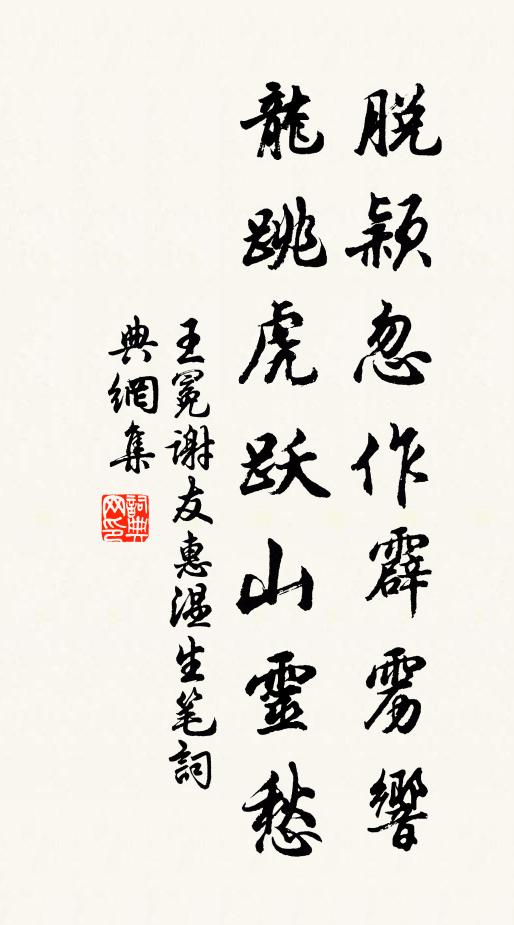 脱颖忽作霹雳響
龍跳虎跃山靈愁
王冕谢友惠温生笔詞
典網集
詞典網印